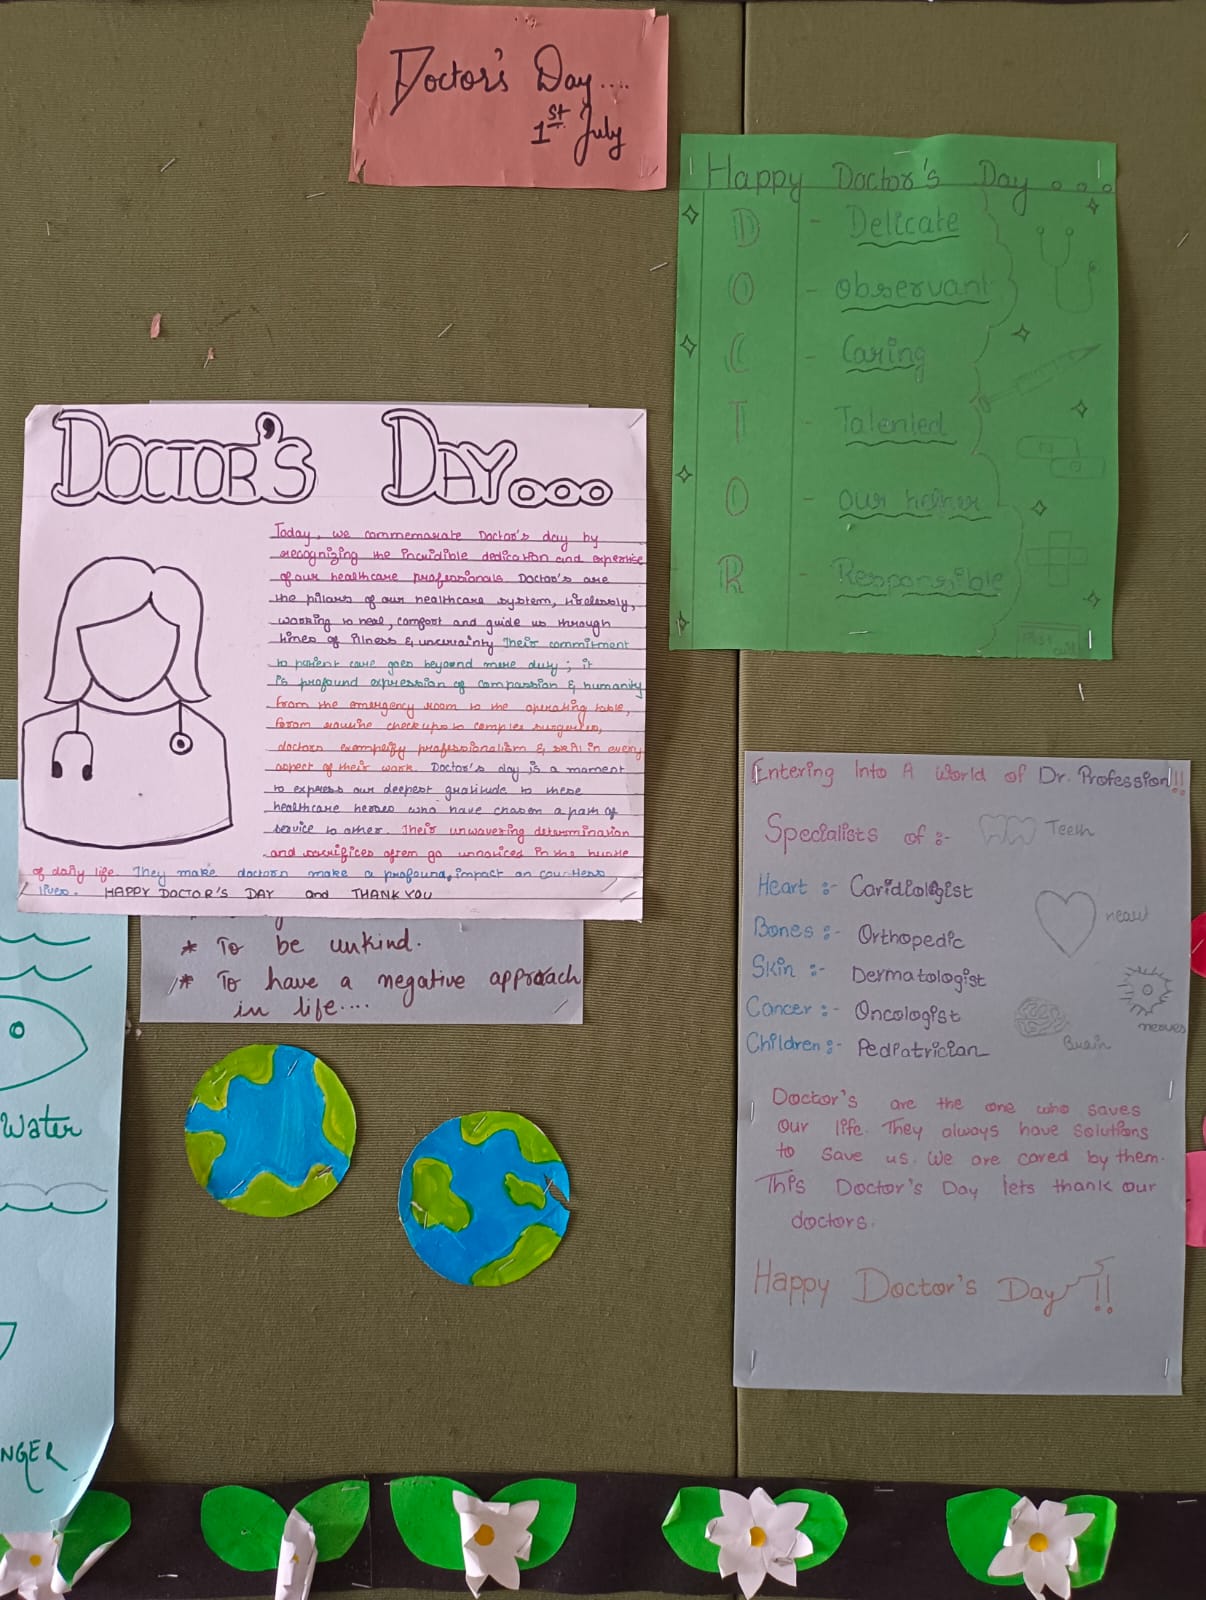 Doctor's Day....
1st July
Happy Doctor's Day ...
D - Delicate
O - Observant
C - Caring
T - Talented
O - Our helper
R - Responsible
DOCTOR'S DAY...
Today, we commemorate Doctor's day by
recognizing the incredible dedication and expertise
of our healthcare professionals. Doctor's are
the pillars of our healthcare system, tirelessly,
working to heal, comfort and guide us through
times of illness & uncertainty Their commitment
to patient care goes beyond mere duty; it
is profound expression of compassion & humanity
from the emergency room to the operating table,
from routine checkups to complex surgeries,
doctors exemplify professionalism & skill in every
aspect of their work. Doctor's day is a moment
to express our deepest gratitude to these
healthcare heroes who have chosen a path of
service to other. Their unwavering determination
and sacrifices often go unnoticed in the
of daily life. They make doctors make a profound, impact on countless
lives. HAPPY DOCTOR'S DAY and THANK YOU
* To be unkind.
* To have a negative approach
in life....
Water
NGER
Entering Into A World of Dr. Profession!!
Specialists of :-
Teeth
Heart :- Caridiologist
heart
Bones :- Orthopedic
Skin :- Dermatologist
Cancer :- Oncologist
nerves
Children :- Pediatrician
Brain
Doctor's are the one who saves
our life. They always have solutions
to save us. We are cared by them.
This Doctor's Day lets thank our
doctors.
Happy Doctor's Day !!